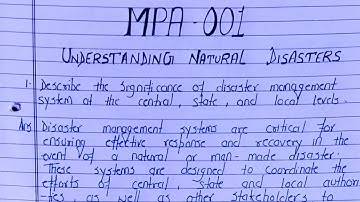 MPA-001
UNDERSTANDING NATURAL DISASTERS
1. Describe the significance of disaster management
system at the central, state, and local levels.
Ans Disaster management systems are critical for
ensuring effective response and recovery in the
event of a natural or man-made disaster.
These systems are designed to coordinate the
efforts of central, state and local author-
ties, as well as other stakeholders to